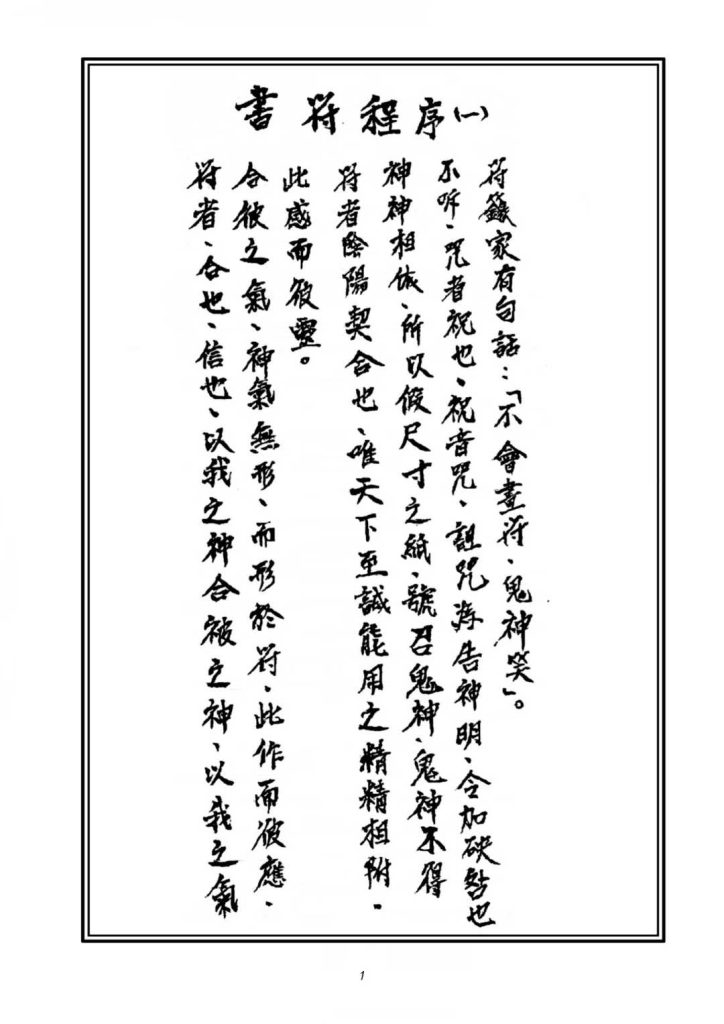 書符程序(一)
符者、合也、信也、以我之神合彼之神、以我之氣
合彼之氣、神氣無形、而形於符、此作而彼應、
此感而彼靈。
符者陰陽契合也、唯天下至誠能用之精精相附、
神神相依、所以假尺寸之紙、號召鬼神、鬼神不得
不听、咒者祝也、祝音咒、詛咒告神明、令加殃咎也
符籙家有句話:「不會畫符、鬼神笑」。
1